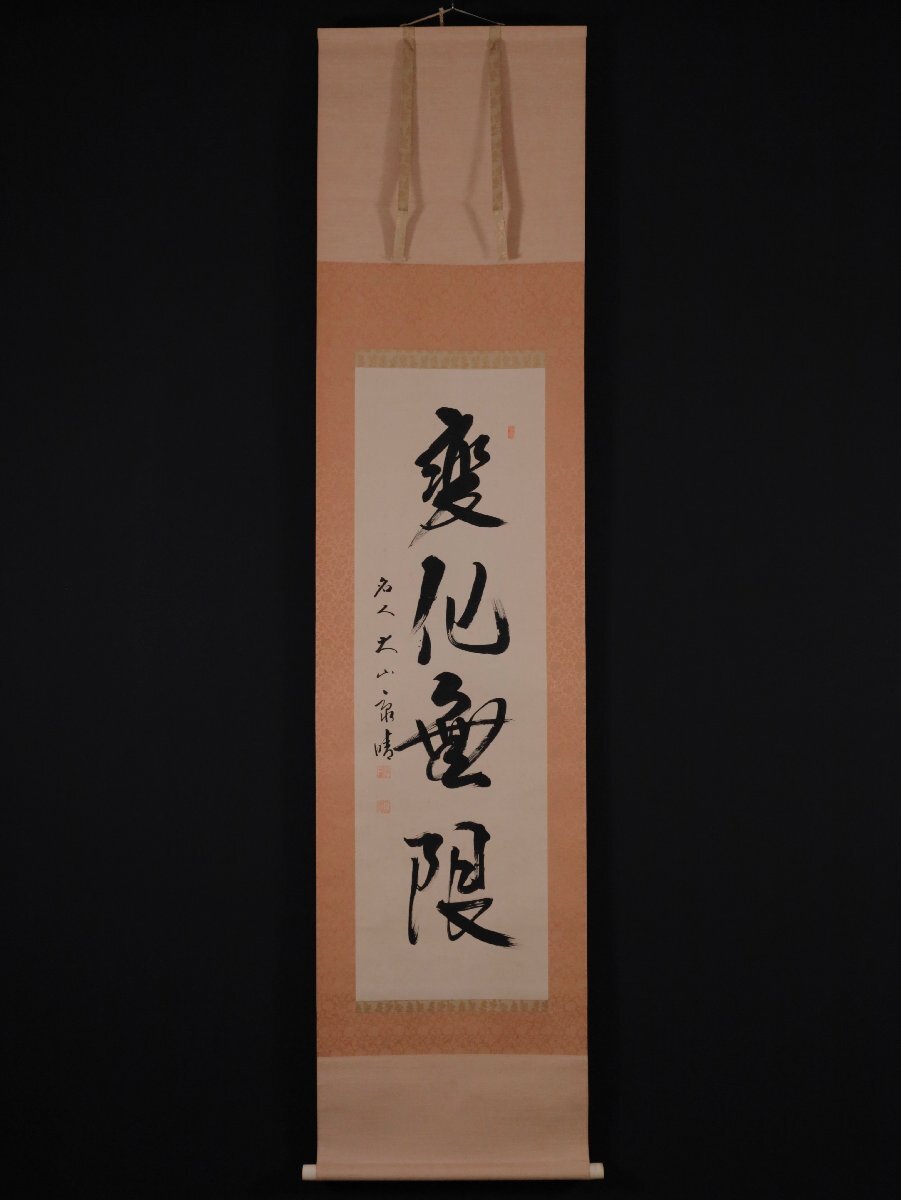 變化無限
名人大山康晴